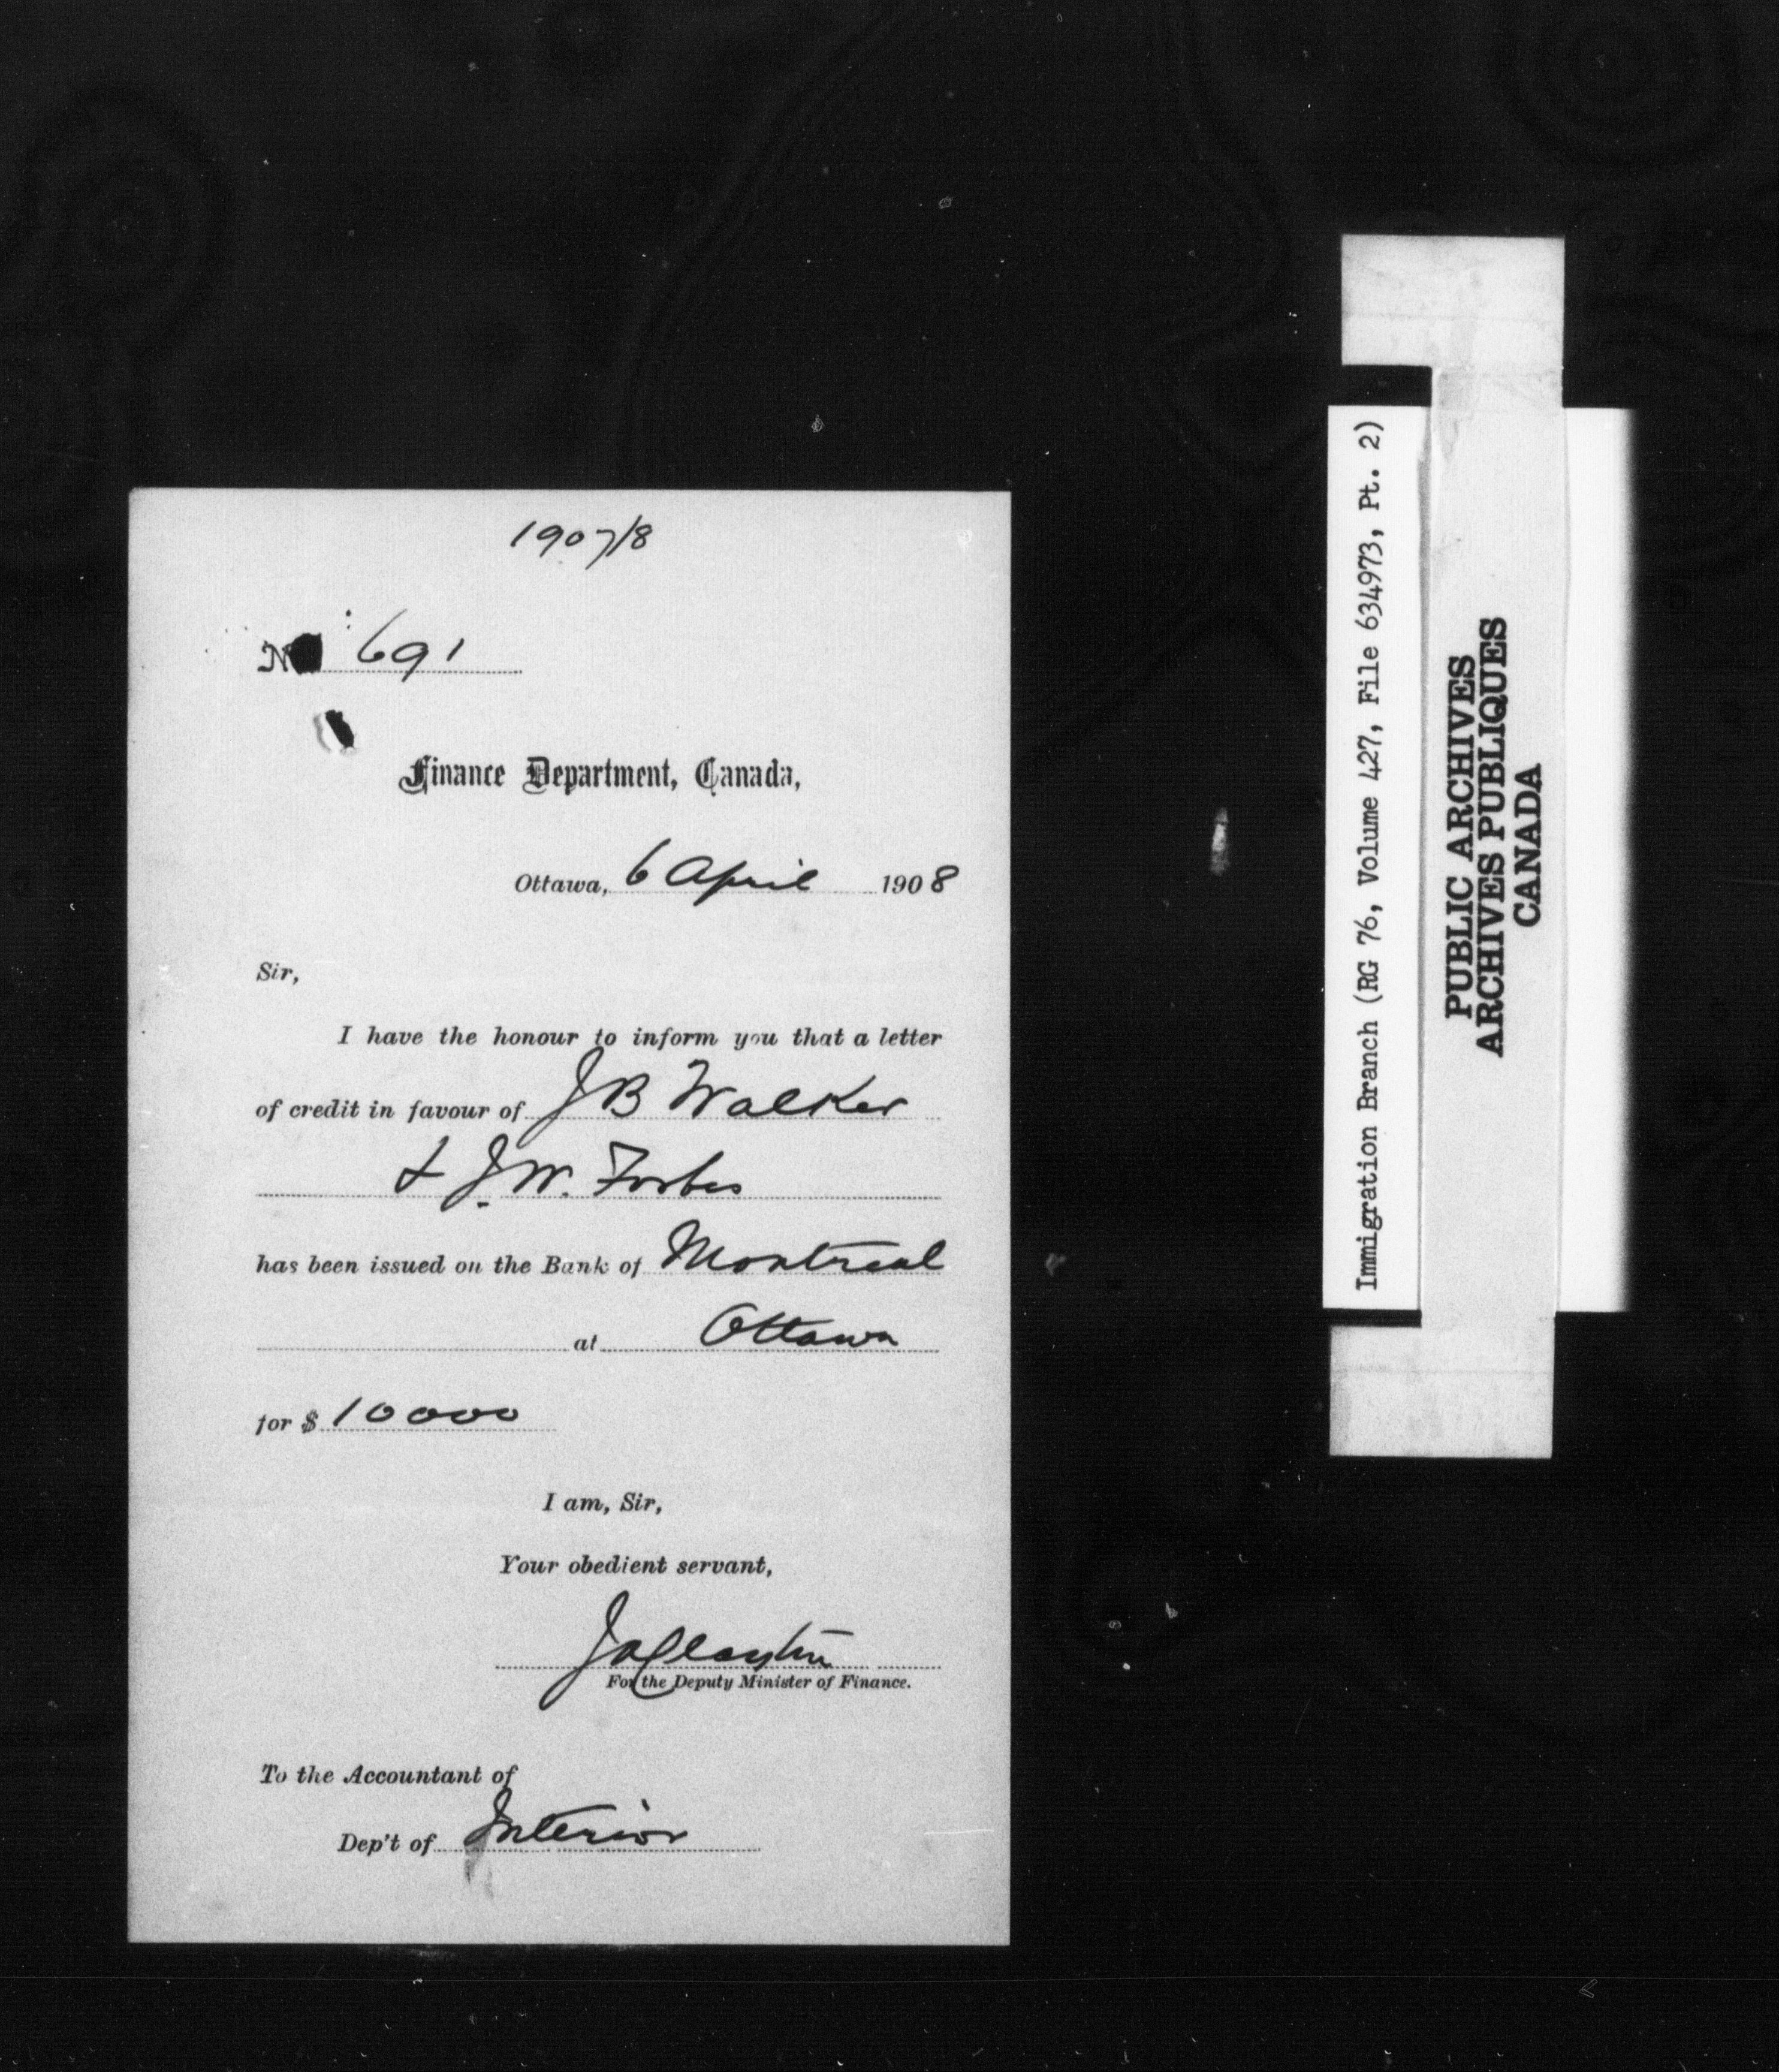 1907/8
No 691
Finance Department, Canada,
Ottawa, 6 April 1908
Sir,
I have the honour to inform you that a letter
of credit in favour of J B Walker
& J. W. Forbes
has been issued on the Bank of Montreal
at Ottawa
for $ 10000
I am, Sir,
Your obedient servant,
For the Deputy Minister of Finance.
To the Accountant of
Dep't of Interior
Immigration Branch (RG 76, Volume 427, File 634973, Pt. 2)
PUBLIC ARCHIVES
ARCHIVES PUBLIQUES
CANADA